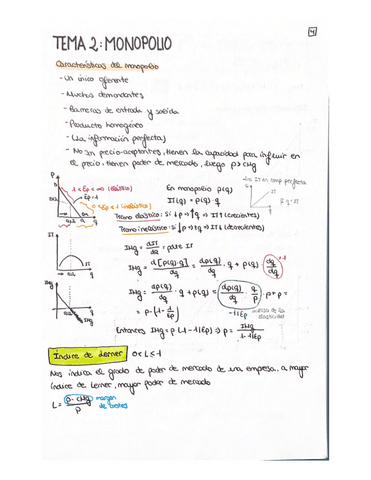 4
TEMA 2: MONOPOLIO
Características del monopolio
- Un único oferente
- Muchos demandantes
- Barreras de entrada y salida
- Producto homogéneo
- (La información perfecta)
- No son precio-aceptantes, tienen la capacidad para influir en
el precio, tienen poder de mercado, luego p > CMg
1 < Ep < ∞ (elástico)
Ep=1
0 < Ep < 1 (inelástico)
En monopolio p(q)
IT(q) = p(q) · q
Los IT en comp perfecta
Tramo elástico: Si ↓p → ↑q → IT (crecientes)
Tramo inelástico: Si ↓p → ↑q → IT (decrecientes)
IT
IMg
IMg = dIT/dq = pdte IT
IMg = d[p(q)·q]/dq = dp(q)/dq · q + p(q) · dq/dq
IMg = dp(q)/dq · q + p(q) = dp(q)/dq · q/p · p + p =
inversa de la elasticidad
Entonces IMg = p (1 - 1/Ep) ⇒ p = IMg / 1 - 1/Ep
Índice de Lerner 0 < L ≤ 1
Nos indica el grado de poder de mercado de una empresa, a mayor
índice de Lerner, mayor poder de mercado
L = p - CMg / p margen de costes